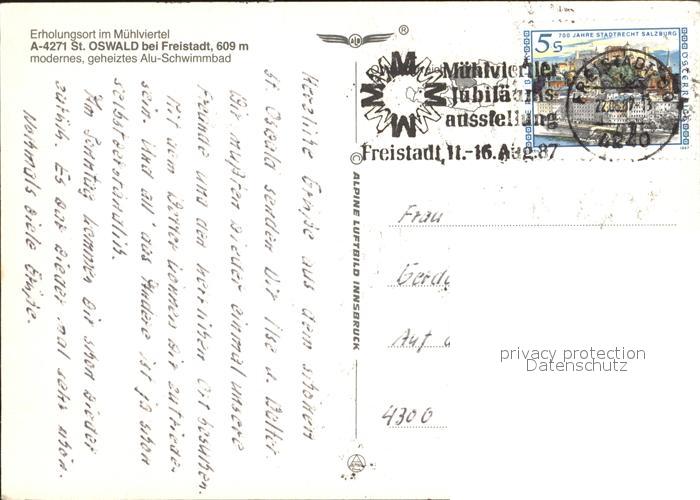 Erholungsort im Mühlviertel
A-4271 St. OSWALD bei Freistadt, 609 m
modernes, geheiztes Alu-Schwimmbad
Herzliche Grüße aus dem schönen
St. Oswald senden Dir Ilse u. Walter.
Wir mußten wieder einmal unsere
Freunde und den herrlichen Ort besuchen.
Mit dem Wetter können wir zufrieden
sein. Und all' das Andere ist ja schon
selbstverständlich.
Am Sonntag kommen wir schon wieder
zurück. Es war wieder mal sehr schön.
Nochmals viele Grüße.
®
ALPINE LUFTBILD INNSBRUCK
Mühlviertler
Jubiläums-
ausstellung
Freistadt, 11.-16. Aug. 87
5 S
700 JAHRE STADTRECHT SALZBURG
4240
Frau
Gerd
Auf d
4300
privacy protection
Datenschutz